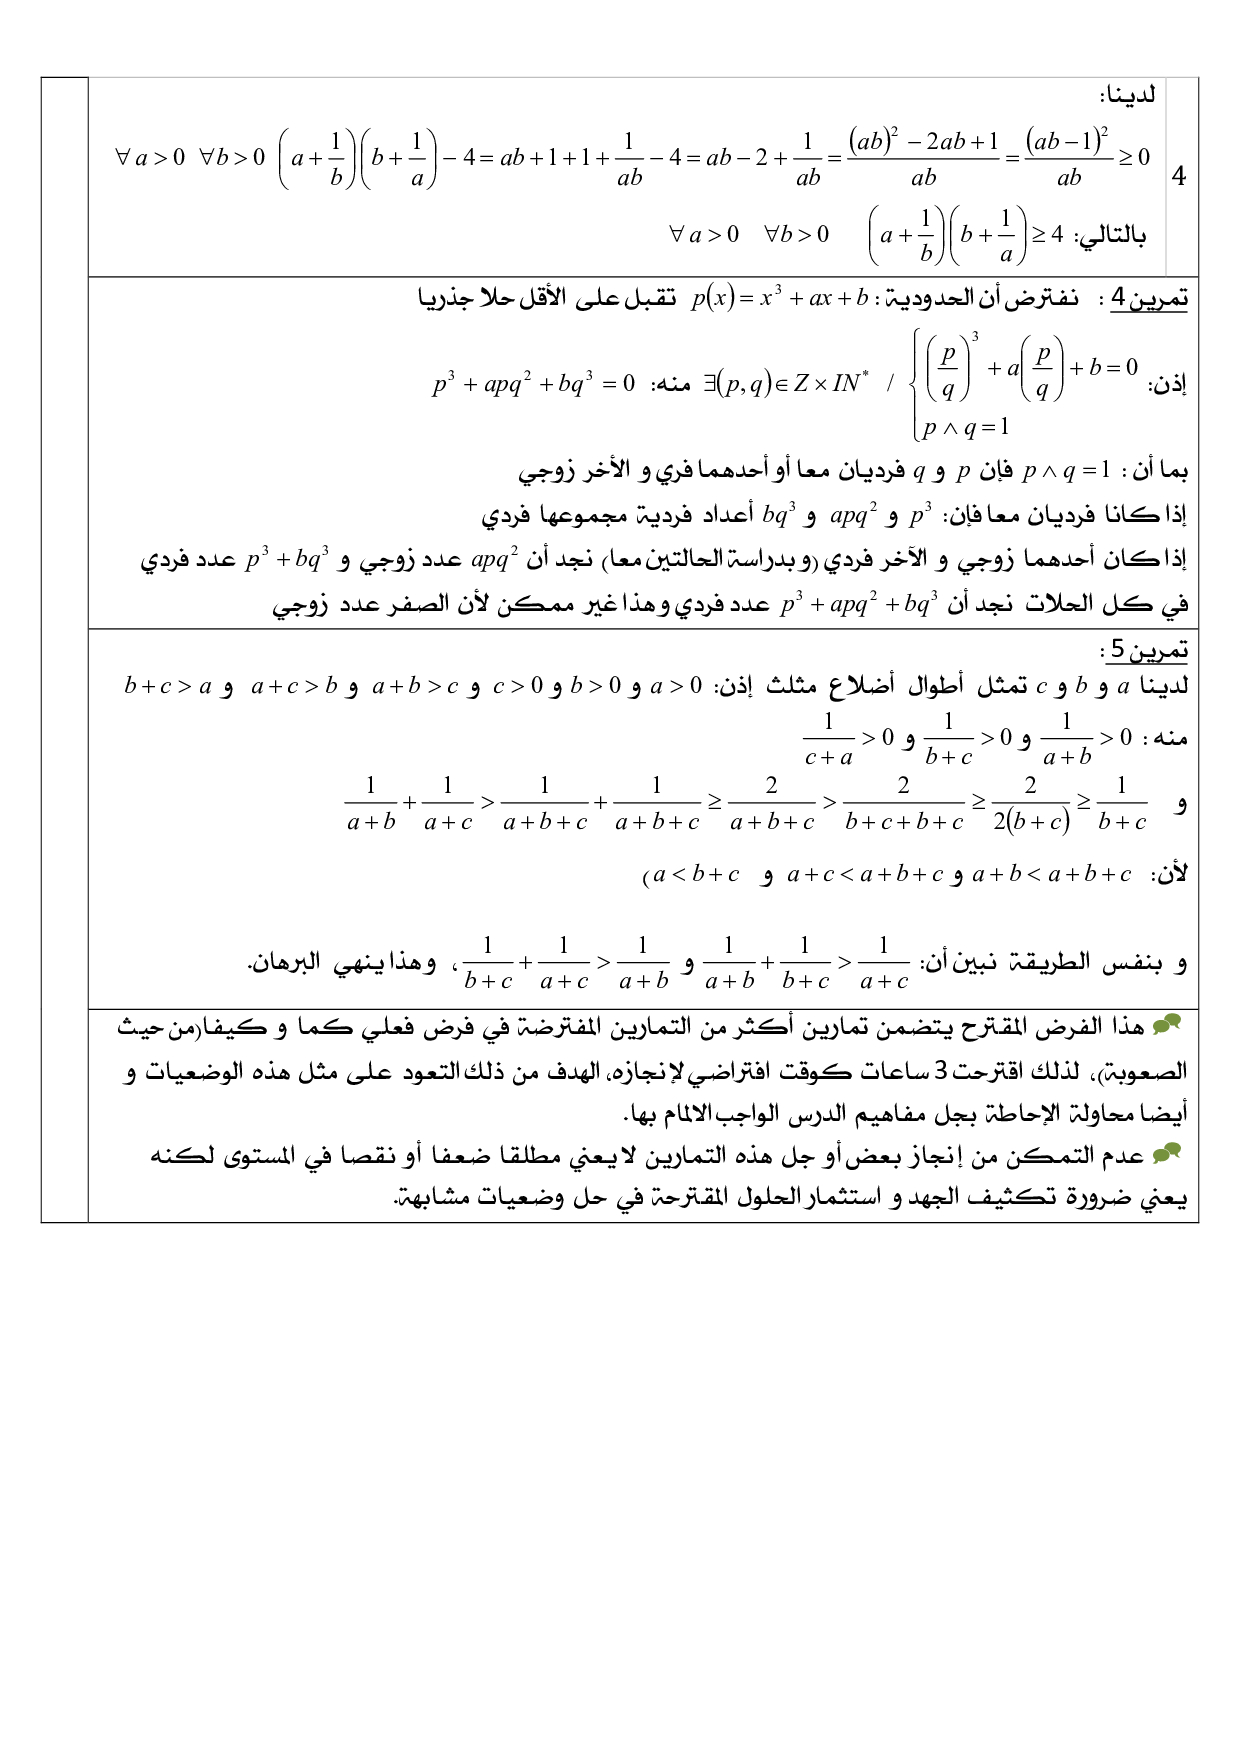 لدينا:
4
∀a > 0 ∀b > 0 (a + 1/b)(b + 1/a) − 4 = ab + 1 + 1 + 1/ab − 4 = ab − 2 + 1/ab = ((ab)² − 2ab + 1)/ab = (ab − 1)²/ab ≥ 0
بالتالي: ∀a > 0 ∀b > 0 (a + 1/b)(b + 1/a) ≥ 4
تمرين 4 : نفترض أن الحدودية : p(x) = x³ + ax + b تقبل على الأقل حلا جذريا
إذن: ∃(p,q) ∈ Z × IN* / { (p/q)³ + a(p/q) + b = 0 ; p ∧ q = 1 منه: p³ + apq² + bq³ = 0
بما أن : p ∧ q = 1 فإن p و q فرديان معا أو أحدهما فري و الأخر زوجي
إذا كانا فرديان معا فإن: p³ و apq² و bq³ أعداد فردية مجموعها فردي
إذا كان أحدهما زوجي و الآخر فردي (و بدراسة الحالتين معا) نجد أن apq² عدد زوجي و p³ + bq³ عدد فردي
في كل الحلات نجد أن p³ + apq² + bq³ عدد فردي وهذا غير ممكن لأن الصفر عدد زوجي
تمرين 5 :
لدينا a و b و c تمثل أطوال أضلاع مثلث إذن: a > 0 و b > 0 و c > 0 و a + b > c و a + c > b و b + c > a
منه : 1/(a + b) > 0 و 1/(b + c) > 0 و 1/(c + a) > 0
و 1/(a + b) + 1/(a + c) > 1/(a + b + c) + 1/(a + b + c) ≥ 2/(a + b + c) > 2/(b + c + b + c) ≥ 2/2(b + c) ≥ 1/(b + c)
لأن: a + b < a + b + c و a + c < a + b + c و a < b + c )
و بنفس الطريقة نبين أن: 1/(a + b) + 1/(b + c) > 1/(a + c) و 1/(b + c) + 1/(a + c) > 1/(a + b) ، وهذا ينهي البرهان.
هذا الفرض المقترح يتضمن تمارين أكثر من التمارين المفترضة في فرض فعلي كما و كيفا(من حيث
الصعوبة)، لذلك اقترحت 3 ساعات كوقت افتراضي لإنجازه، الهدف من ذلك التعود على مثل هذه الوضعيات و
أيضا محاولة الإحاطة بجل مفاهيم الدرس الواجب الالمام بها.
عدم التمكن من إنجاز بعض أو جل هذه التمارين لا يعني مطلقا ضعفا أو نقصا في المستوى لكنه
يعني ضرورة تكثيف الجهد و استثمار الحلول المقترحة في حل وضعيات مشابهة.